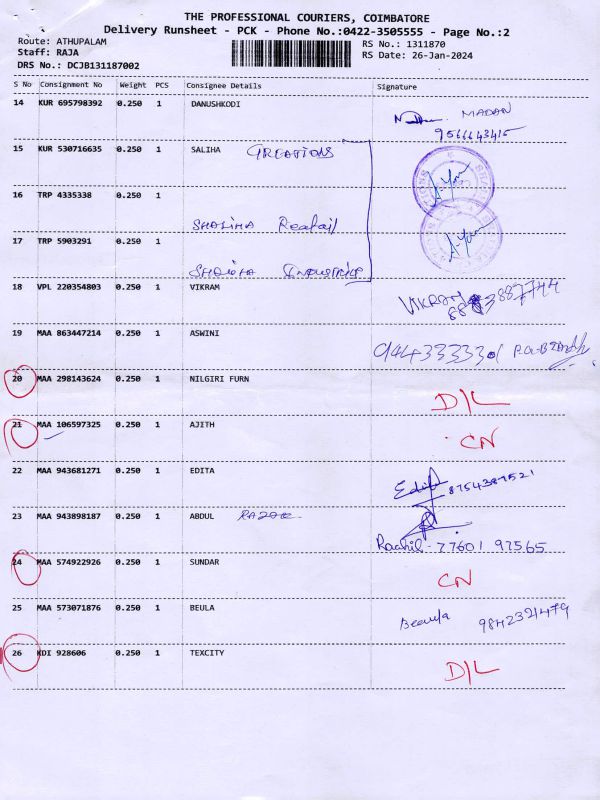 THE PROFESSIONAL COURIERS, COIMBATORE
Delivery Runsheet - PCK - Phone No.:0422-3505555 - Page No.:2
Route: ATHUPALAM
Staff: RAJA
DRS No.: DCJB131187002
RS No.: 1311870
RS Date: 26-Jan-2024
S No Consignment No Weight PCS Consignee Details Signature
14 KUR 695798392 0.250 1 DANUSHKODI MADAN
9566643415
15 KUR 530716635 0.250 1 SALIHA CREATIONS
16 TRP 4335338 0.250 1
SHALIHA
17 TRP 5903291 0.250 1
INDUSTRIES
18 VPL 220354803 0.250 1 VIKRAM VIKRAM
887744
19 MAA 863447214 0.250 1 ASWINI
20 MAA 298143624 0.250 1 NILGIRI FURN D/L
21 MAA 106597325 0.250 1 AJITH CN
22 MAA 943681271 0.250 1 EDITA Edita 8754387521
23 MAA 943898187 0.250 1 ABDUL RAZAK
Raahil - 77601 97565
24 MAA 574922926 0.250 1 SUNDAR CN
25 MAA 573071876 0.250 1 BEULA Beaula 9842321479
26 KDI 928606 0.250 1 TEXCITY D/L